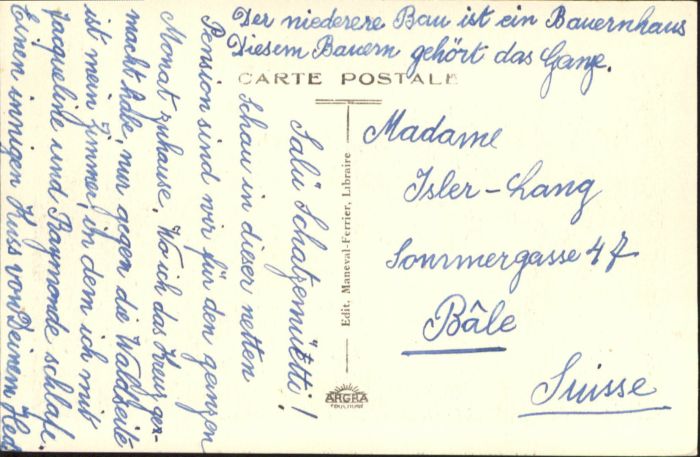 Der niederere Bau ist ein Bauernhaus
Diesem Bauern gehört das Ganze.
CARTE POSTALE
Salü Schatzemüetti!
Schau in dieser netten
Pension sind wir für den ganzen
Monat zuhause. Wo ich das Kreuz ge-
macht habe, nur gegen die Waldseite
ist mein Zimmer, in dem ich mit
Jacqueline und Raymonde schlafe.
Einen innigen Kuss von Deinem
Madame
Isler-Lang
Sommergasse 47
Bâle
Suisse
Edit. Maneval-Ferrier, Libraire
ARGRA